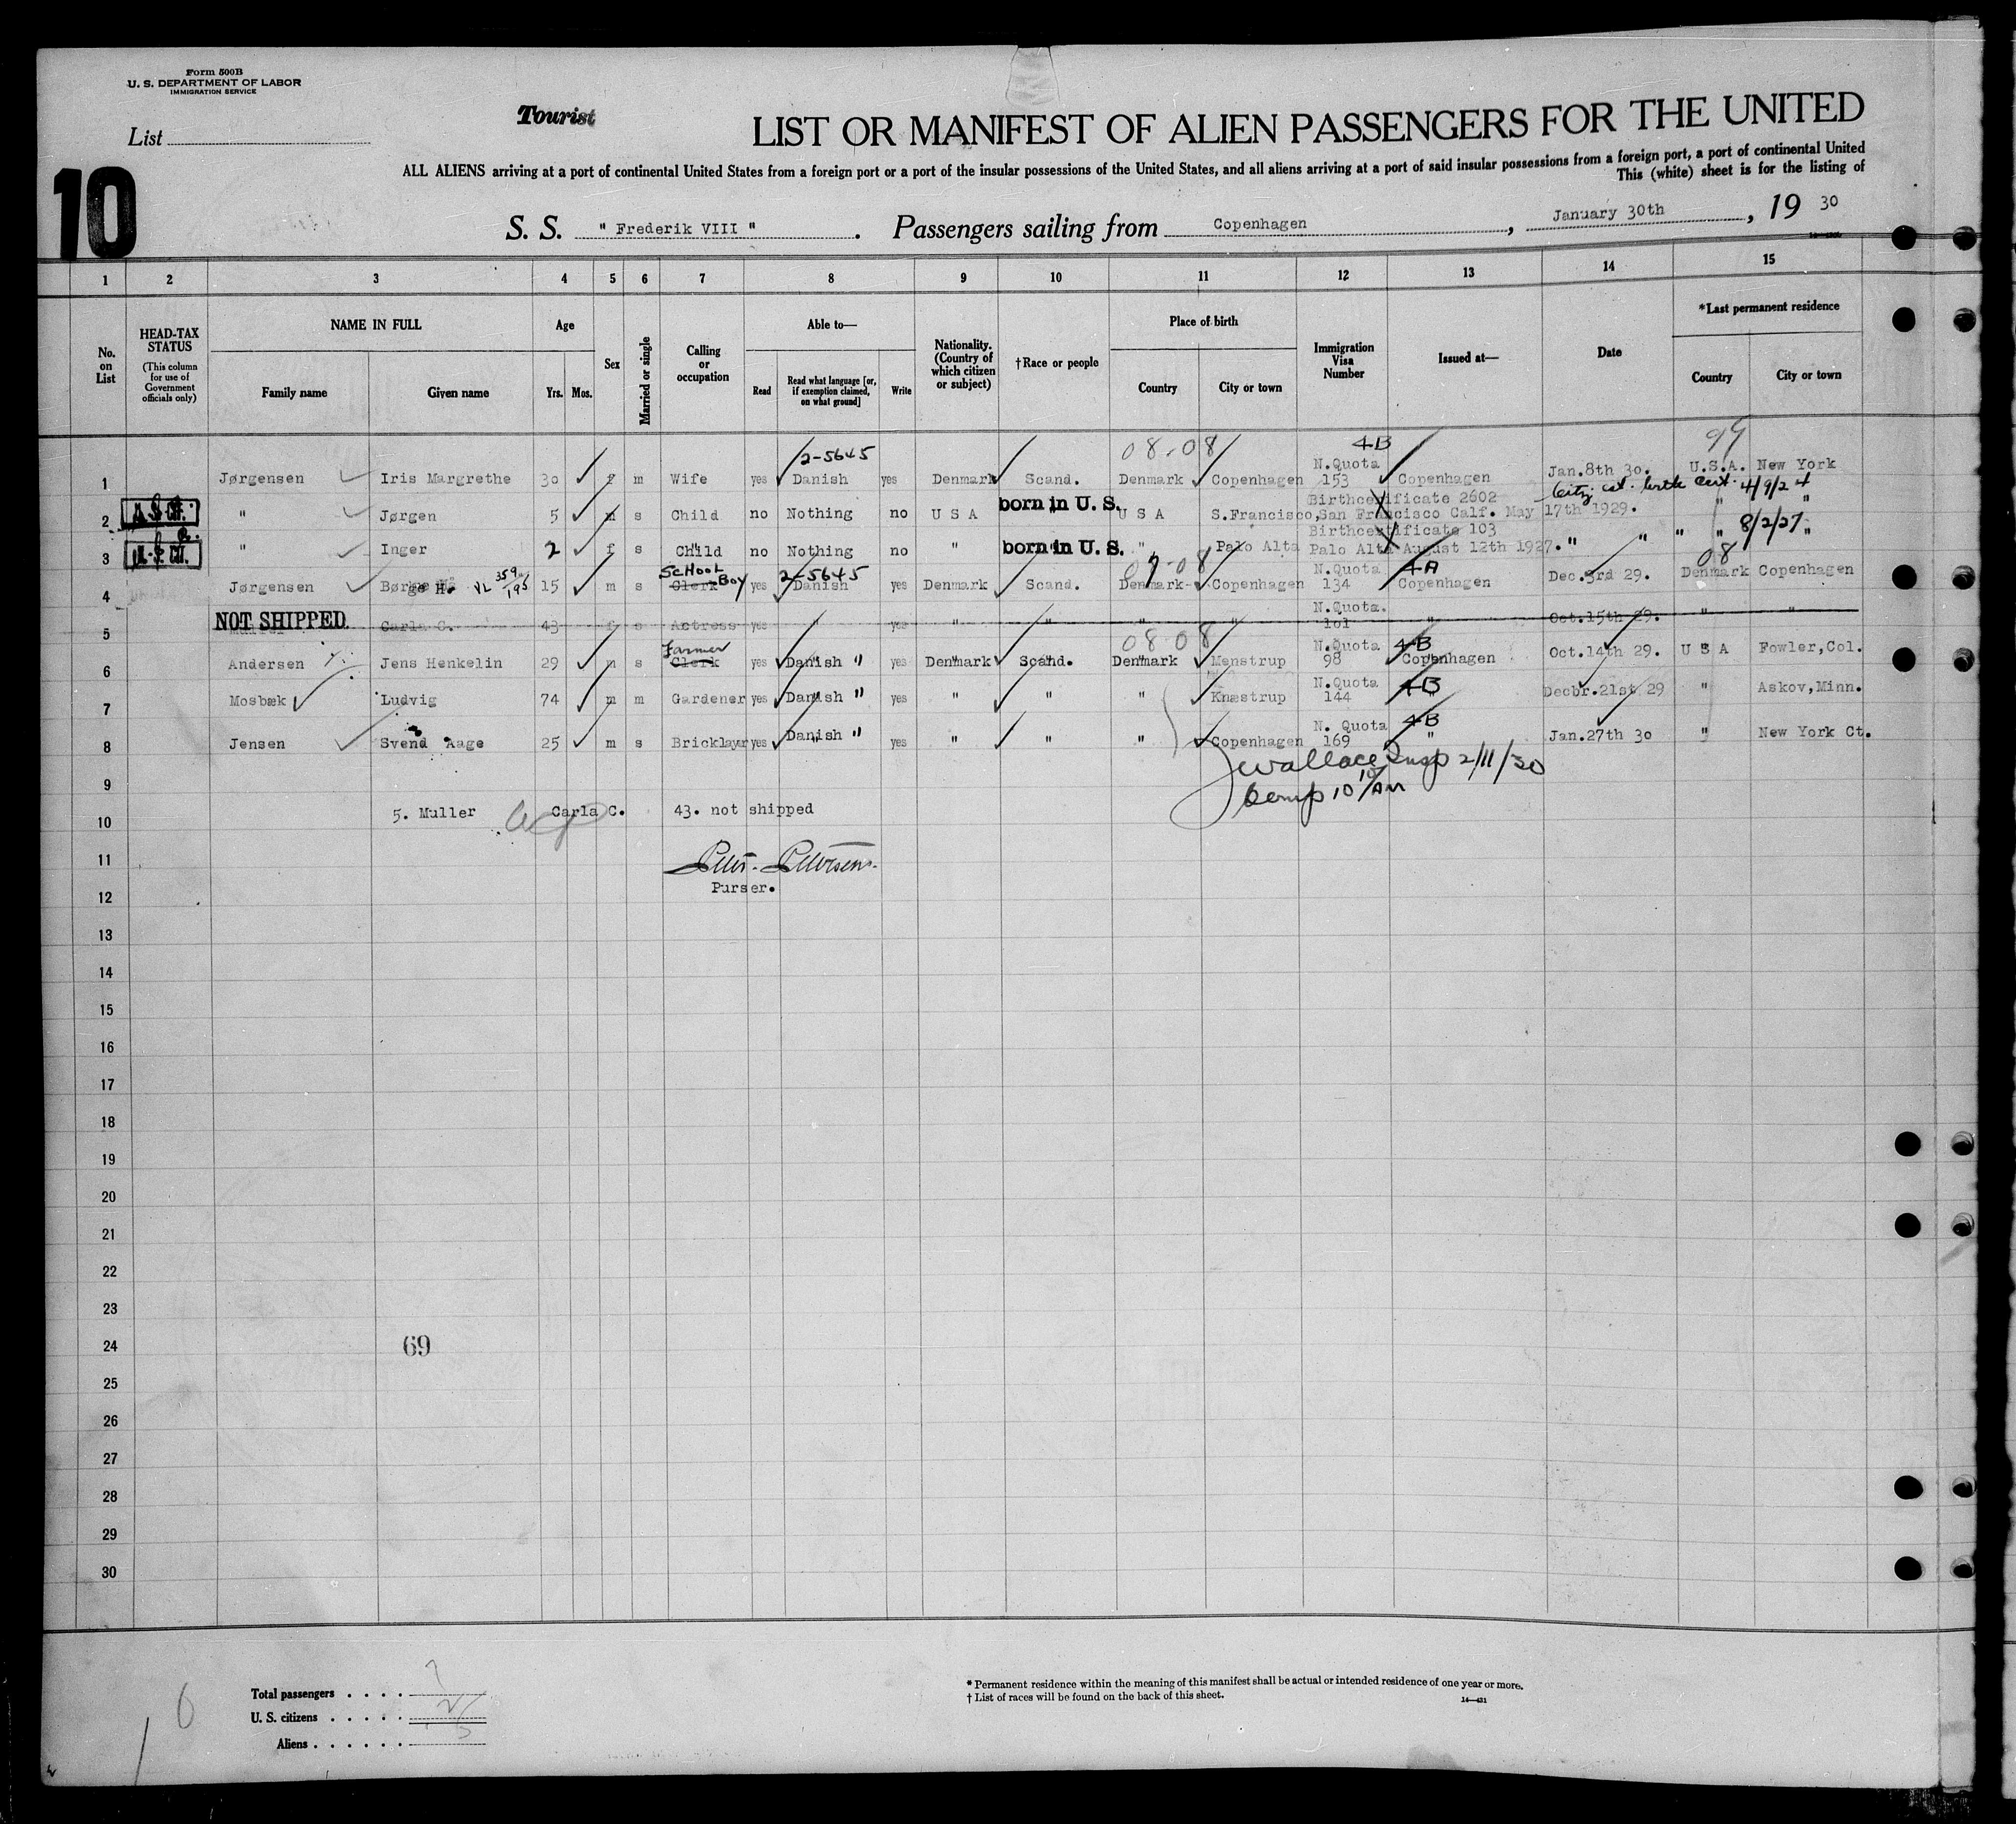 Form 500B
U. S. DEPARTMENT OF LABOR
IMMIGRATION SERVICE
List
Tourist
LIST OR MANIFEST OF ALIEN PASSENGERS FOR THE UNITED
10
ALL ALIENS arriving at a port of continental United States from a foreign port or a port of the insular possessions of the United States, and all aliens arriving at a port of said insular possessions from a foreign port, a port of continental United
This (white) sheet is for the listing of
S. S. " Frederik VIII " . Passengers sailing from Copenhagen , January 30th , 19 30
1 2 3 4 5 6 7 8 9 10 11 12 13 14 15
No. on List
HEAD-TAX STATUS (This column for use of Government officials only)
NAME IN FULL
Family name Given name
Age
Yrs. Mos.
Sex
Married or single
Calling or occupation
Able to—
Read Read what language [or, if exemption claimed, on what ground] Write
Nationality. (Country of which citizen or subject)
†Race or people
Place of birth
Country City or town
Immigration Visa Number
Issued at—
Date
*Last permanent residence
Country City or town
2-5645 08-08 4B 99
1 Jørgensen Iris Margrethe 30 f m Wife yes Danish yes Denmark Scand. Denmark Copenhagen N.Quota 153 Copenhagen Jan.8th 30. U.S.A. New York
City cat. birth cert. 4/9/24
2 " Jørgen 5 m s Child no Nothing no U S A born in U. S. U S A S.Francisco, Birthcertificate 2602 San Francisco Calf. May 17th 1929. " "
3 " Inger 2 f s Child no Nothing no " born in U. S. " Palo Alta Birthcertificate 103 Palo Alta August 12th 1927. " " " " 8/2/27 "
School Boy 2-5645 07-08 4A 08
4 Jørgensen Børge H. VL 359/195 15 m s Clerk yes Danish yes Denmark Scand. Denmark Copenhagen N.Quota 134 Copenhagen Dec.3rd 29. Denmark Copenhagen
5 NOT SHIPPED Carla C. 43 f s Actress yes " yes " " " " N.Quota. 101 " Oct.15th 29. " "
Farmer 08 08 4B
6 Andersen Jens Henkelin 29 m s Clerk yes Danish " yes Denmark Scand. Denmark Menstrup N.Quota 98 Copenhagen Oct.14th 29. U S A Fowler,Col.
7 Mosbæk Ludvig 74 m m Gardener yes Danish " yes " " " Knæstrup N.Quota 144 4B " Decbr.21st 29 " Askov,Minn.
8 Jensen Svend Aage 25 m s Bricklayer yes Danish " yes " " " Copenhagen N. Quota 169 4B " Jan.27th 30 " New York Ct.
Wallace Insp 2/11/30
9
10 5. Muller Carla C. 43. not shipped
11
Purser.
12
13
14
15
16
17
18
19
20
21
22
23
24 69
25
26
27
28
29
30
Total passengers . . . .
U. S. citizens . . . . .
Aliens . . . . . .
* Permanent residence within the meaning of this manifest shall be actual or intended residence of one year or more.
† List of races will be found on the back of this sheet.
14—431